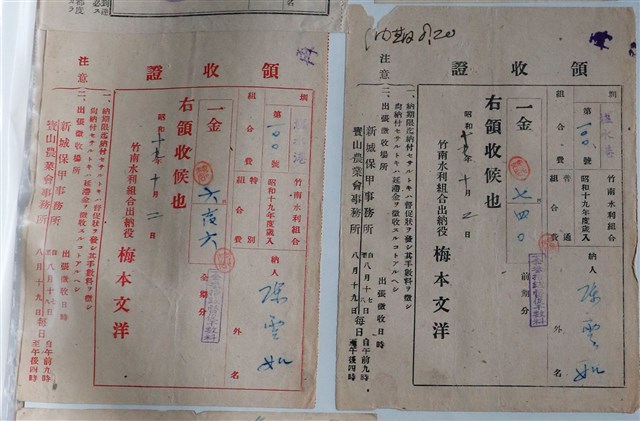 領收證
圳
竹南水利組合
第
昭和十九年度歲入
組合費 特別組合費
一金 六
全期分
納人 陳雲如 外 名
右領收候也
昭和十 年十月二日
竹南水利組合出納役 梅本文洋
注意
一、納期限迄納付セザルトキハ督促狀ヲ發シ其手數料ヲ徵シ
尚納付セザルトキハ延滯金ヲ徵收スルコトアルベシ
二、出張徵收場所 出張徵收日時
新城保甲事務所
寶山農業會事務所
自八月十七日
八月十八日
八月十九日
每日
自午前九時
至午後四時
領收證
圳
竹南水利組合
第
昭和十九年度歲入
組合費 普通組合費
一金 七四〇
前期分
納人 陳雲如 外 名
右領收候也
昭和十 年十月 日
竹南水利組合出納役 梅本文洋
注意
一、納期限迄納付セザルトキハ督促狀ヲ發シ其手數料ヲ徵シ
尚納付セザルトキハ延滯金ヲ徵收スルコトアルベシ
二、出張徵收場所 出張徵收日時
新城保甲事務所
寶山農業會事務所
自八月十七日
八月十八日
八月十九日
每日
自午前九時
至午後四時